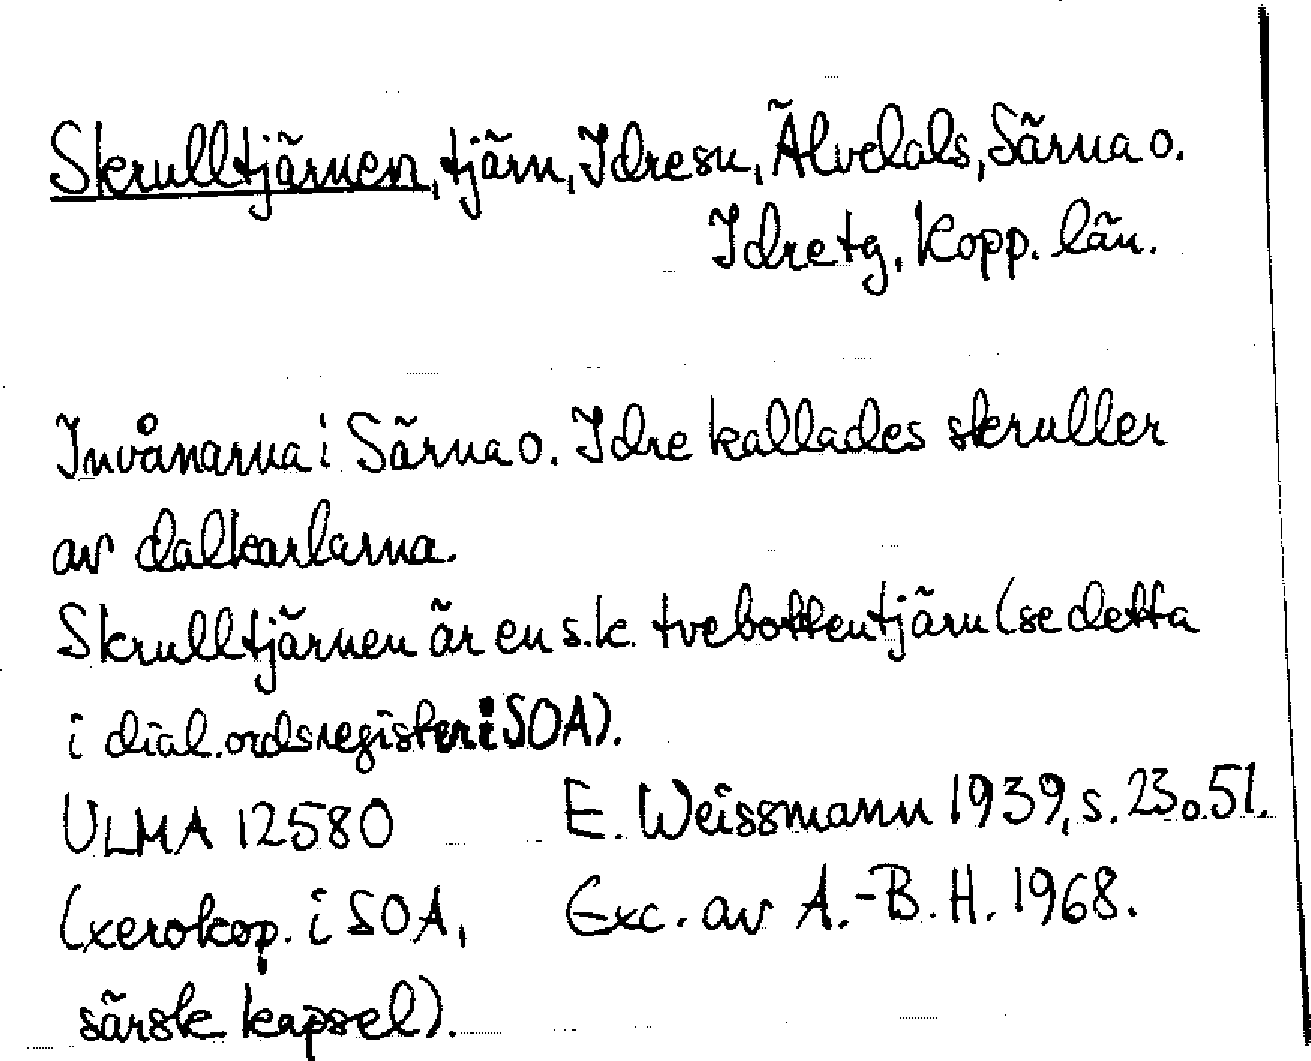 Skrulltjärnen, tjärn, Idresn, Älvdals, Särna o.
Idre tg, Kopp. län.
Invånarna i Särna o. Idre kallades skruller
av dalkarlarna.
Skrulltjärnen är en s.k. tvebottentjärn (se detta
i dial.ordsregister i SOA).
ULMA 12580 E. Weissmann 1939, s. 23 o. 51.
(xerokop. i SOA, Exc. av A.-B. H. 1968.
särsk kapsel).